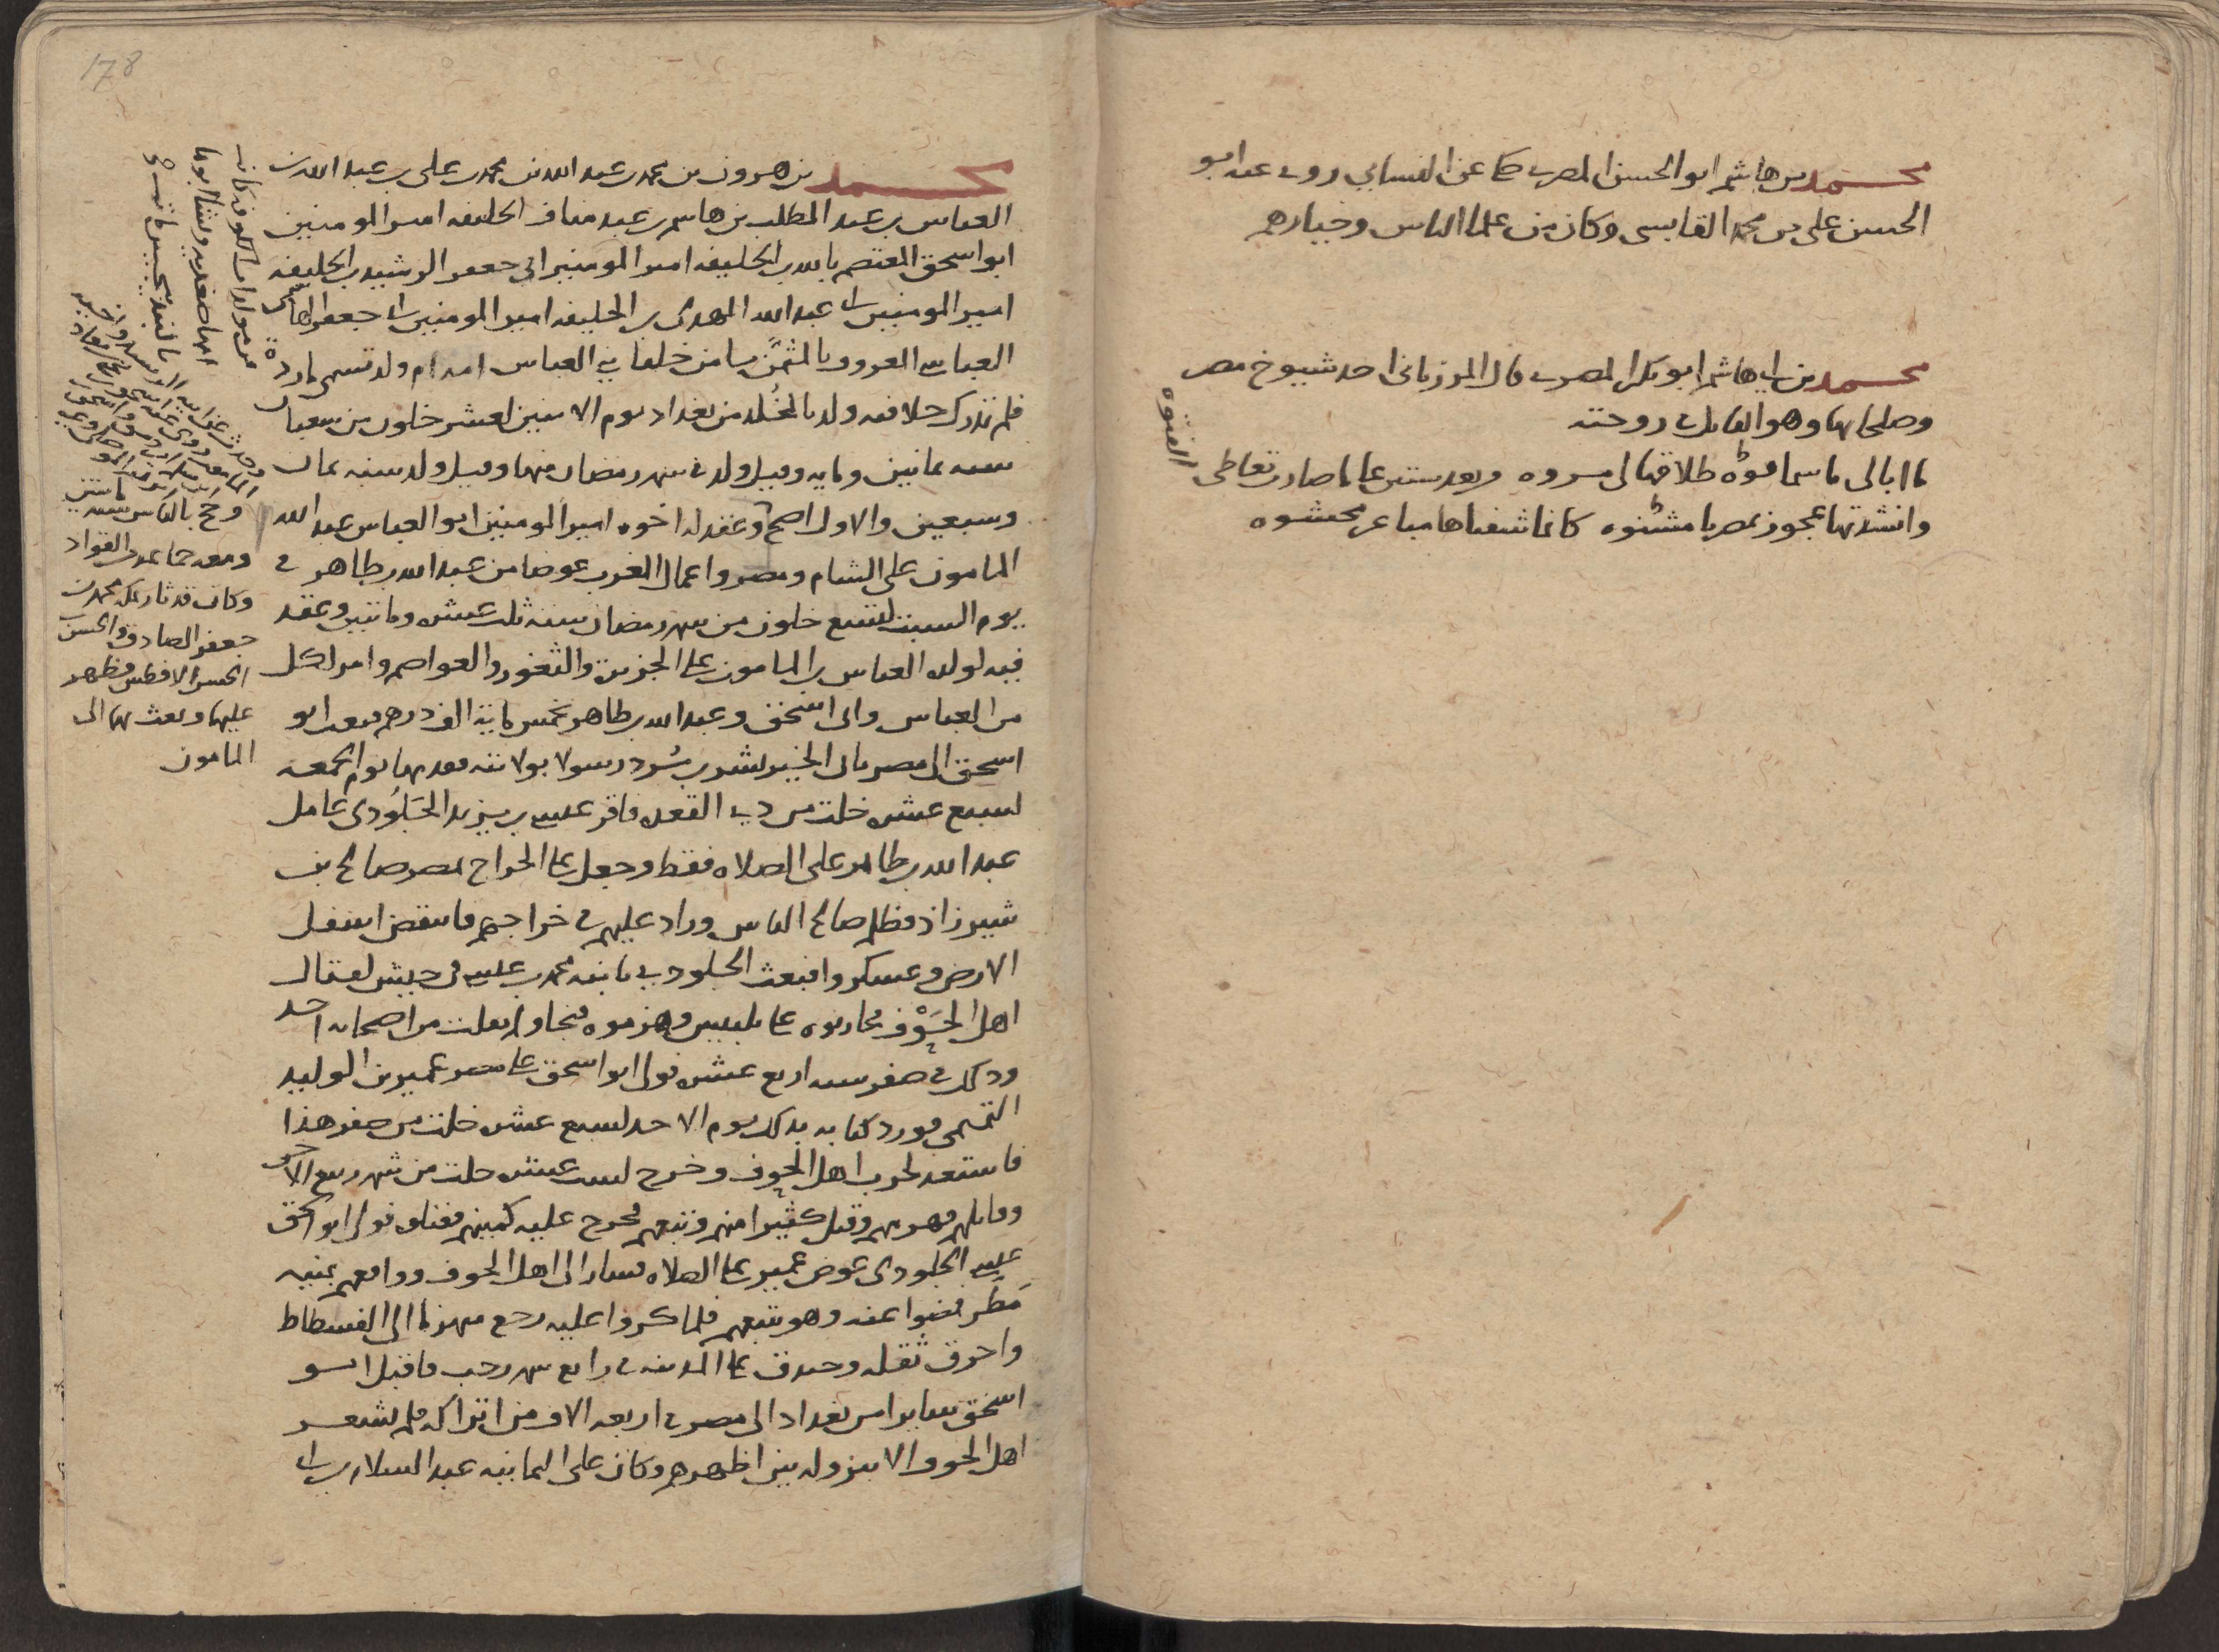 محمد بن هاشم ابو الحسن المصرى حكا عن النسائي روى عنه ابو
الحسن على بن محمد القابسى وكان من علما الناس وخيارهم
محمد بن ابى هاشم ابو بكر المصرى قال المرزبانى احد شيوخ مصر
وصلحائها وهو القائل فى زوجته
ما ابالى ما سما فوه طلاقها لى مسروه وبعد ستين عاما صارت تعاطى
الفتوه
وانشدتها عجوز بمصر يا مشئوه كانما شفتاها مباعر محشوه
178
محمد بن هرون بن محمد بن عبد الله بن محمد بن على بن عبد الله بن
العباس بن عبد المطلب بن هاشم بن عبد مناف الخليفه امير المومنين
ابو اسحق المعتصم بالله بن الخليفه امير المومنين ابى جعفر الرشيد بن الخليفه
امير المومنين ابى عبد الله المهدى بن الخليفه امير المومنين ابى جعفر الهاشمى
العباسى المعروف بالمثمن ثامن خلفا بنى العباس امه ام ولد تسمى ماردة
فلم تدرك خلافته ولد بالخلد من بغداد يوم الاثنين لعشر خلون من شعبان
سنه ثمانين ومايه وقيل ولد فى شهر رمضان منها وقيل ولد سنه ثمان
وسبعين والاول اصح وعقد له اخوه امير المومنين ابو العباس عبد الله
المامون على الشام ومصر واعمال الغرب عوضا من عبد الله بن طاهر فى
يوم السبت لتسع خلون من شهر رمضان سنه ثلث عشره ومائتين وعقد
فيه لولده العباس بن المامون على الجزيرة والثغور والعواصم وامر لكل
من العباس وابى اسحق وعبد الله بن طاهر بخمس مائة الف درهم فبعث ابو
اسحق الى مصر بابى الخير بشر بن بُرد رسولا بولايته فقدمها يوم الجمعه
لسبع عشره خلت من ذى القعده فاقر عيسى بن يزيد الجلودى عامل
عبد الله بن طاهر على الصلاه فقط وجعل على الخراج بمصر صالح بن
شيرزاذ فظلم صالح الناس وزاد عليهم فى خراجهم فانتقض اسفل
الارض وعسكروا فبعث الجلودى بابنه محمد بن عيسى فى جيش لقتال
اهل الحوف فحاربوه على بلبيس وهزموه فنجا ولم يفلت من اصحابه احد
وذلك فى صفر سنه اربع عشره فولى ابو اسحق على مصر عمير بن الوليد
التميمى فورد كتابه بذلك يوم الاحد لسبع عشره خلت من صفر هذا
فاستعد لحرب اهل الحوف وخرج لست عشره خلت من شهر ربيع الاخر
وقاتلهم فهزمهم وقتل كثيرا منهم وتبعهم فخرج عليه كمينهم فقتلوه فولى ابو اسحق
عيسى الجلودى عوض عمير على الصلاه فسار الى اهل الحوف وواقعهم بمنيه
مطر فمضوا عنه وهو يتبعهم فلما كروا عليه رجع منهزما الى الفسطاط
واحرق ثقله وخندق على المدينه فى رابع شهر رجب فاقبل ابو
اسحق سايرا من بغداد الى مصر فى اربعه الاف من اتراكه فلم يشعر
اهل الحوف الا بنزوله بين اظهرهم وكان على اليمانيه عبد السلام بن ابى
من مولدات الكوفه وكانت
امها صغديه ونشا ابوها
بالبندنيجين
وحدث عن ابيه الرشيد واخيه
المامون روى عنه
وحج بالناس سنه مائتين
ومعه جماعه من القواد
وكان قد ثار بمكه محمد بن
جعفر الصادق والحسين بن
الحسن الافطس فظهر
عليهما وبعث بهما الى
المامون